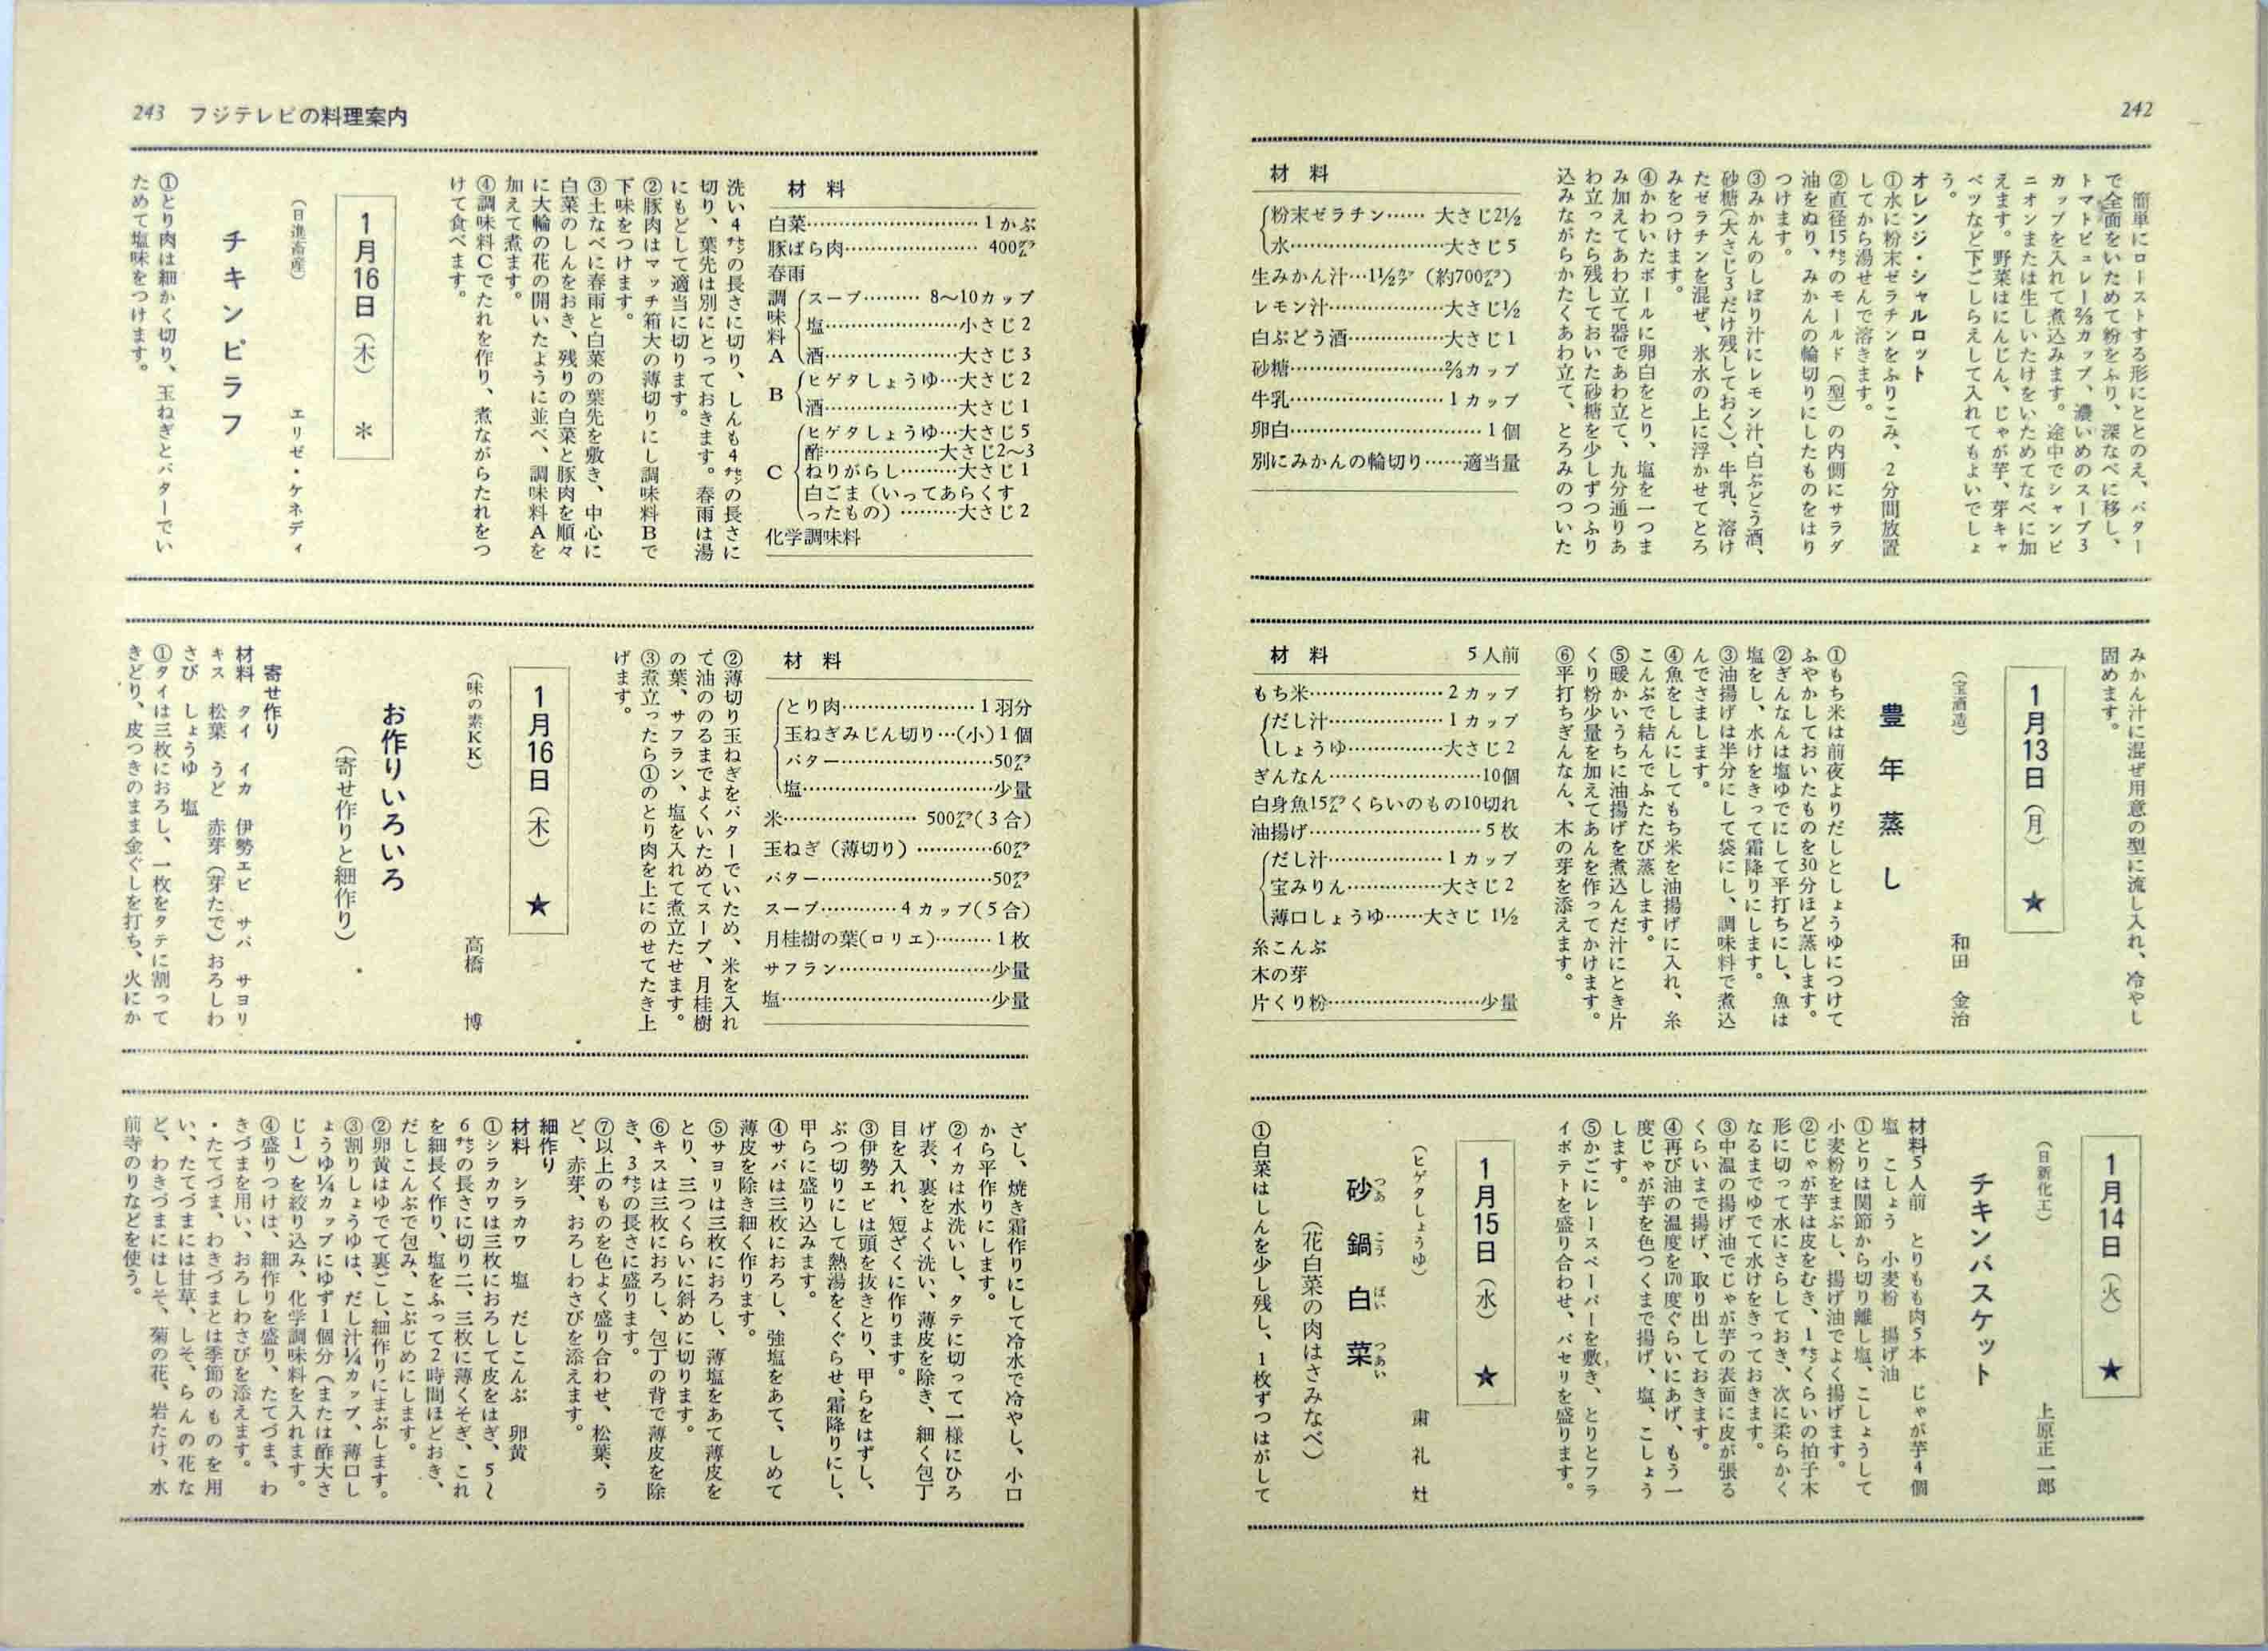 242
簡単にローストする形にととのえ、バター
で全面をいためて粉をふり、深なべに移し、
トマトピューレー⅔カップ、濃いめのスープ3
カップを入れて煮込みます。途中でシャンピ
ニオンまたは生しいたけをいためてなべに加
えます。野菜はにんじん、じゃが芋、芽キャ
ベツなど下ごしらえして入れてもよいでしょ
う。
オレンジ・シャルロット
①水に粉末ゼラチンをふりこみ、2分間放置
してから湯せんで溶きます。
②直径15㌢のモールド（型）の内側にサラダ
油をぬり、みかんの輪切りにしたものをはり
つけます。
③みかんのしぼり汁にレモン汁、白ぶどう酒、
砂糖（大さじ3だけ残しておく）、牛乳、溶け
たゼラチンを混ぜ、氷水の上に浮かせてとろ
みをつけます。
④かわいたボールに卵白をとり、塩を一つま
み加えてあわ立て器であわ立て、九分通りあ
わ立ったら残しておいた砂糖を少しずつふり
込みながらかたくあわ立て、とろみのついた
材　料
粉末ゼラチン……大さじ2½
水……大さじ5
生みかん汁…1½㌍（約700㌘）
レモン汁……大さじ½
白ぶどう酒……大さじ1
砂糖……⅔カップ
牛乳……1カップ
卵白……1個
別にみかんの輪切り……適当量
みかん汁に混ぜ用意の型に流し入れ、冷やし
固めます。
1月13日（月）　★
（宝酒造）　和田　金治
豊年蒸し
①もち米は前夜よりだしとしょうゆにつけて
ふやかしておいたものを30分ほど蒸します。
②ぎんなんは塩ゆでにして平打ちにし、魚は
塩をし、水けをきって霜降りにします。
③油揚げは半分にして袋にし、調味料で煮込
んでさまします。
④魚をしんにしてもち米を油揚げに入れ、糸
こんぶで結んでふたたび蒸します。
⑤暖かいうちに油揚げを煮込んだ汁にとき片
くり粉少量を加えてあんを作ってかけます。
⑥平打ちぎんなん、木の芽を添えます。
材　料　5人前
もち米……2カップ
だし汁……1カップ
しょうゆ……大さじ2
ぎんなん……10個
白身魚15㌘くらいのもの10切れ
油揚げ……5枚
だし汁……1カップ
宝みりん……大さじ2
薄口しょうゆ……大さじ1½
糸こんぶ
木の芽
片くり粉……少量
1月14日（火）　★
（日新化工）　上原正一郎
チキンバスケット
材料5人前　とりもも肉5本　じゃが芋4個
塩　こしょう　小麦粉　揚げ油
①とりは関節から切り離し塩、こしょうして
小麦粉をまぶし、揚げ油でよく揚げます。
②じゃが芋は皮をむき、1㌢くらいの拍子木
形に切って水にさらしておき、次に柔らかく
なるまでゆでて水けをきっておきます。
③中温の揚げ油でじゃが芋の表面に皮が張る
くらいまで揚げ、取り出しておきます。
④再び油の温度を170度ぐらいにあげ、もう一
度じゃが芋を色つくまで揚げ、塩、こしょう
します。
⑤かごにレースペーパーを敷き、とりとフラ
イポテトを盛り合わせ、パセリを盛ります。
1月15日（水）　★
（ヒゲタしょうゆ）　粛礼灶
砂鍋白菜
つぁこうばいつあい
（花白菜の肉はさみなべ）
①白菜はしんを少し残し、1枚ずつはがして
243　フジテレビの料理案内
材　料
白菜……1かぶ
豚ばら肉……400㌘
春雨
調味料A
スープ……8〜10カップ
塩……小さじ2
酒……大さじ3
B
ヒゲタしょうゆ…大さじ2
酒……大さじ1
C
ヒゲタしょうゆ…大さじ5
酢……大さじ2〜3
ねりがらし……大さじ1
白ごま（いってあらくす
ったもの）……大さじ2
化学調味料
洗い4㌢の長さに切り、しんも4㌢の長さに
切り、葉先は別にとっておきます。春雨は湯
にもどして適当に切ります。
②豚肉はマッチ箱大の薄切りにし調味料Bで
下味をつけます。
③土なべに春雨と白菜の葉先を敷き、中心に
白菜のしんをおき、残りの白菜と豚肉を順々
に大輪の花の開いたように並べ、調味料Aを
加えて煮ます。
④調味料Cでたれを作り、煮ながらたれをつ
けて食べます。
1月16日（木）　＊
（日進畜産）　エリゼ・ケネディ
チキンピラフ
①とり肉は細かく切り、玉ねぎとバターでい
ためて塩味をつけます。
材　料
とり肉……1羽分
玉ねぎみじん切り…（小）1個
バター……50㌘
塩……少量
米……500㌘（3合）
玉ねぎ（薄切り）……60㌘
バター……50㌘
スープ……4カップ（5合）
月桂樹の葉（ロリエ）……1枚
サフラン……少量
塩……少量
②薄切り玉ねぎをバターでいため、米を入れ
て油ののるまでよくいためてスープ、月桂樹
の葉、サフラン、塩を入れて煮立たせます。
③煮立ったら①のとり肉を上にのせてたき上
げます。
1月16日（木）　★
（味の素KK）　高橋　博
お作りいろいろ
（寄せ作りと細作り）
寄せ作り
材料　タイ　イカ　伊勢エビ　サバ　サヨリ
キス　松葉　うど　赤芽（芽たで）おろしわ
さび　しょうゆ　塩
①タイは三枚におろし、一枚をタテに割って
きどり、皮つきのまま金ぐしを打ち、火にか
ざし、焼き霜作りにして冷水で冷やし、小口
から平作りにします。
②イカは水洗いし、タテに切って一様にひろ
げ表、裏をよく洗い、薄皮を除き、細く包丁
目を入れ、短ざくに作ります。
③伊勢エビは頭を抜きとり、甲らをはずし、
ぶつ切りにして熱湯をくぐらせ、霜降りにし、
甲らに盛り込みます。
④サバは三枚におろし、強塩をあて、しめて
薄皮を除き細く作ります。
⑤サヨリは三枚におろし、薄塩をあて薄皮を
とり、三つくらいに斜めに切ります。
⑥キスは三枚におろし、包丁の背で薄皮を除
き、3㌢の長さに盛ります。
⑦以上のものを色よく盛り合わせ、松葉、う
ど、赤芽、おろしわさびを添えます。
細作り
材料　シラカワ　塩　だしこんぶ　卵黄
①シラカワは三枚におろして皮をはぎ、5〜
6㌢の長さに切り二、三枚に薄くそぎ、これ
を細長く作り、塩をふって2時間ほどおき、
だしこんぶで包み、こぶじめにします。
②卵黄はゆでて裏ごし、細作りにまぶします。
③割りしょうゆは、だし汁¼カップ、薄口し
ょうゆ¼カップにゆず1個分（または酢大さ
じ1）を絞り込み、化学調味料を入れます。
④盛りつけは、細作りを盛り、たてづま、わ
きづまを用い、おろしわさびを添えます。
・たてづま、わきづまとは季節のものを用
い、たてづまには甘草、しそ、らんの花な
ど、わきづまにはしそ、菊の花、岩たけ、水
前寺のりなどを使う。